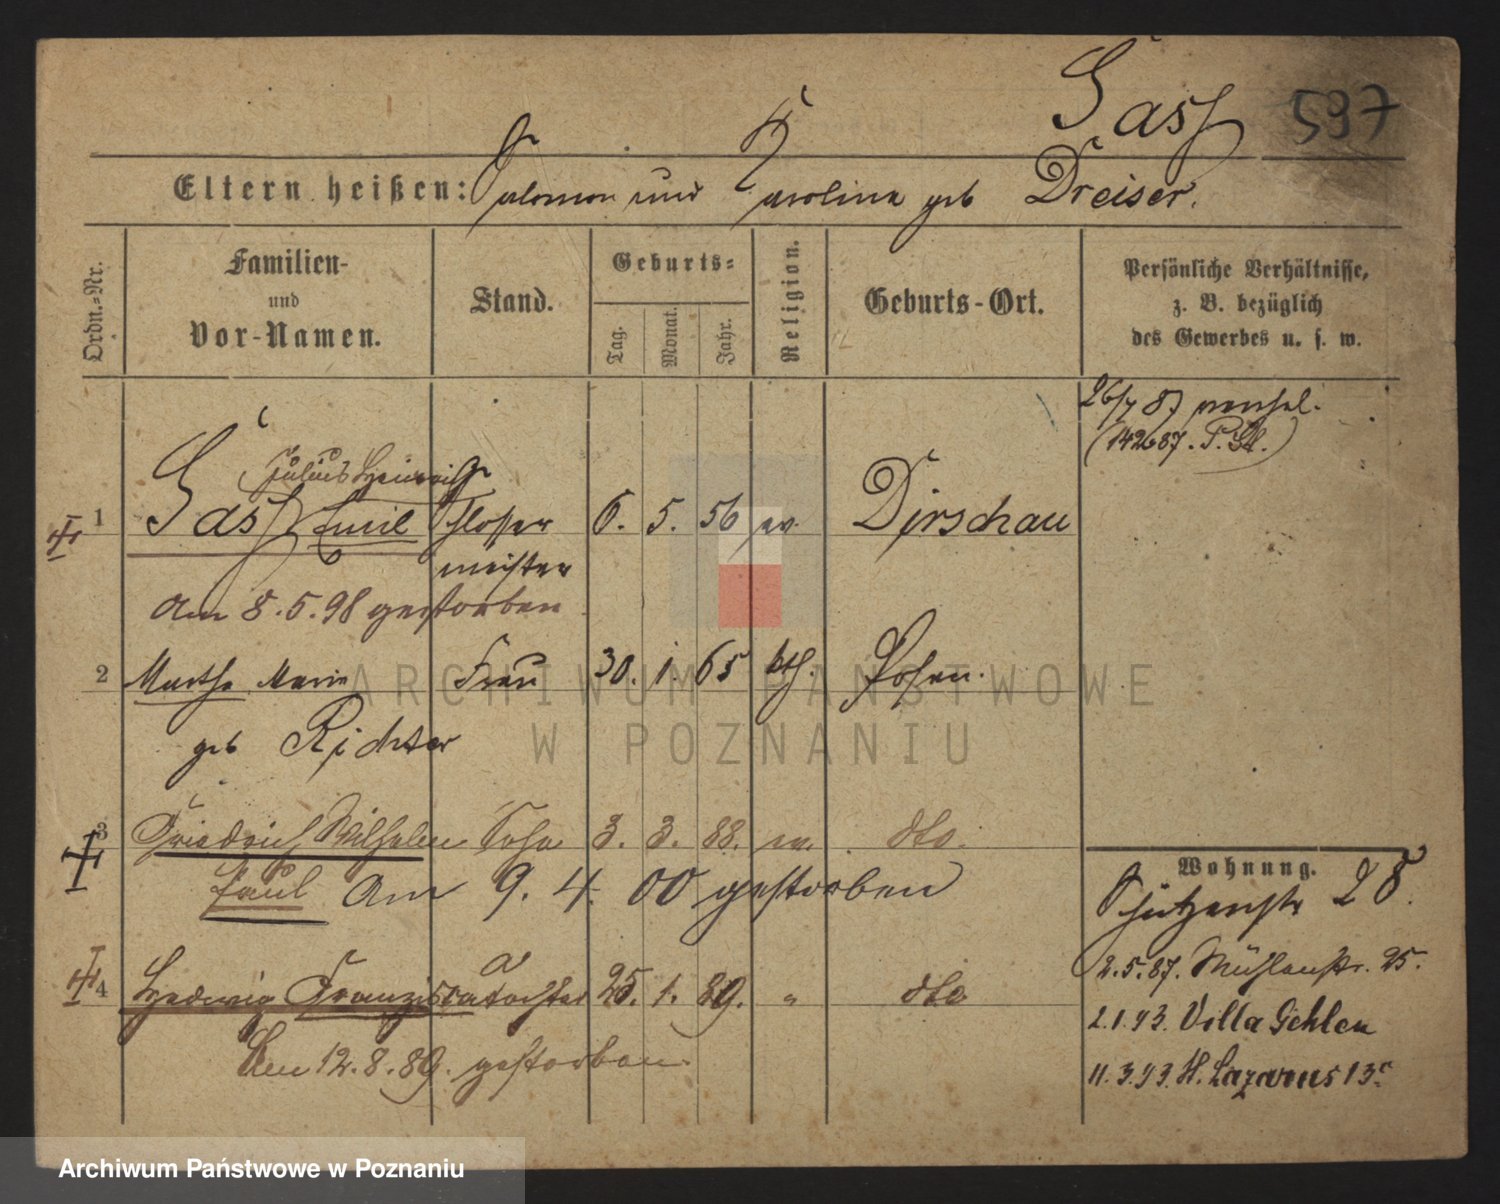 Sass 597
Eltern heißen: Salomon und Karolina geb Dreiser.
Ordn.-Nr.
Familien-
und
Vor-Namen.
Stand.
Geburts-
Tag. Monat. Jahr.
Religion.
Geburts-Ort.
Persönliche Verhältnisse,
z. B. bezüglich
des Gewerbes u. s. w.
26/7 87
(142687. P. Bl.)
Julius Heinrich
1 Sass Emil Schlosser 6. 5. 56 ev. Dirschau
meister
Am 8.5.98 gestorben
2 Martha Marie Frau 30. 1. 65 kth. Posen.
geb Richter
3 Friedrich Wilhelm Sohn 3. 3. 88. ev. dto.
Paul Am 9. 4. 00 gestorben
4 Hedwig Franziska Tochter 25. 1. 89. " dto
Am 12.8.89. gestorben.
Wohnung.
Schützenstr 28.
2.5.87. Mühlenstr. 25.
2.1.93. Villa Gehlen
11.3.93. St. Lazarus 13c
ARCHIWUM PAŃSTWOWE
W POZNANIU
Archiwum Państwowe w Poznaniu